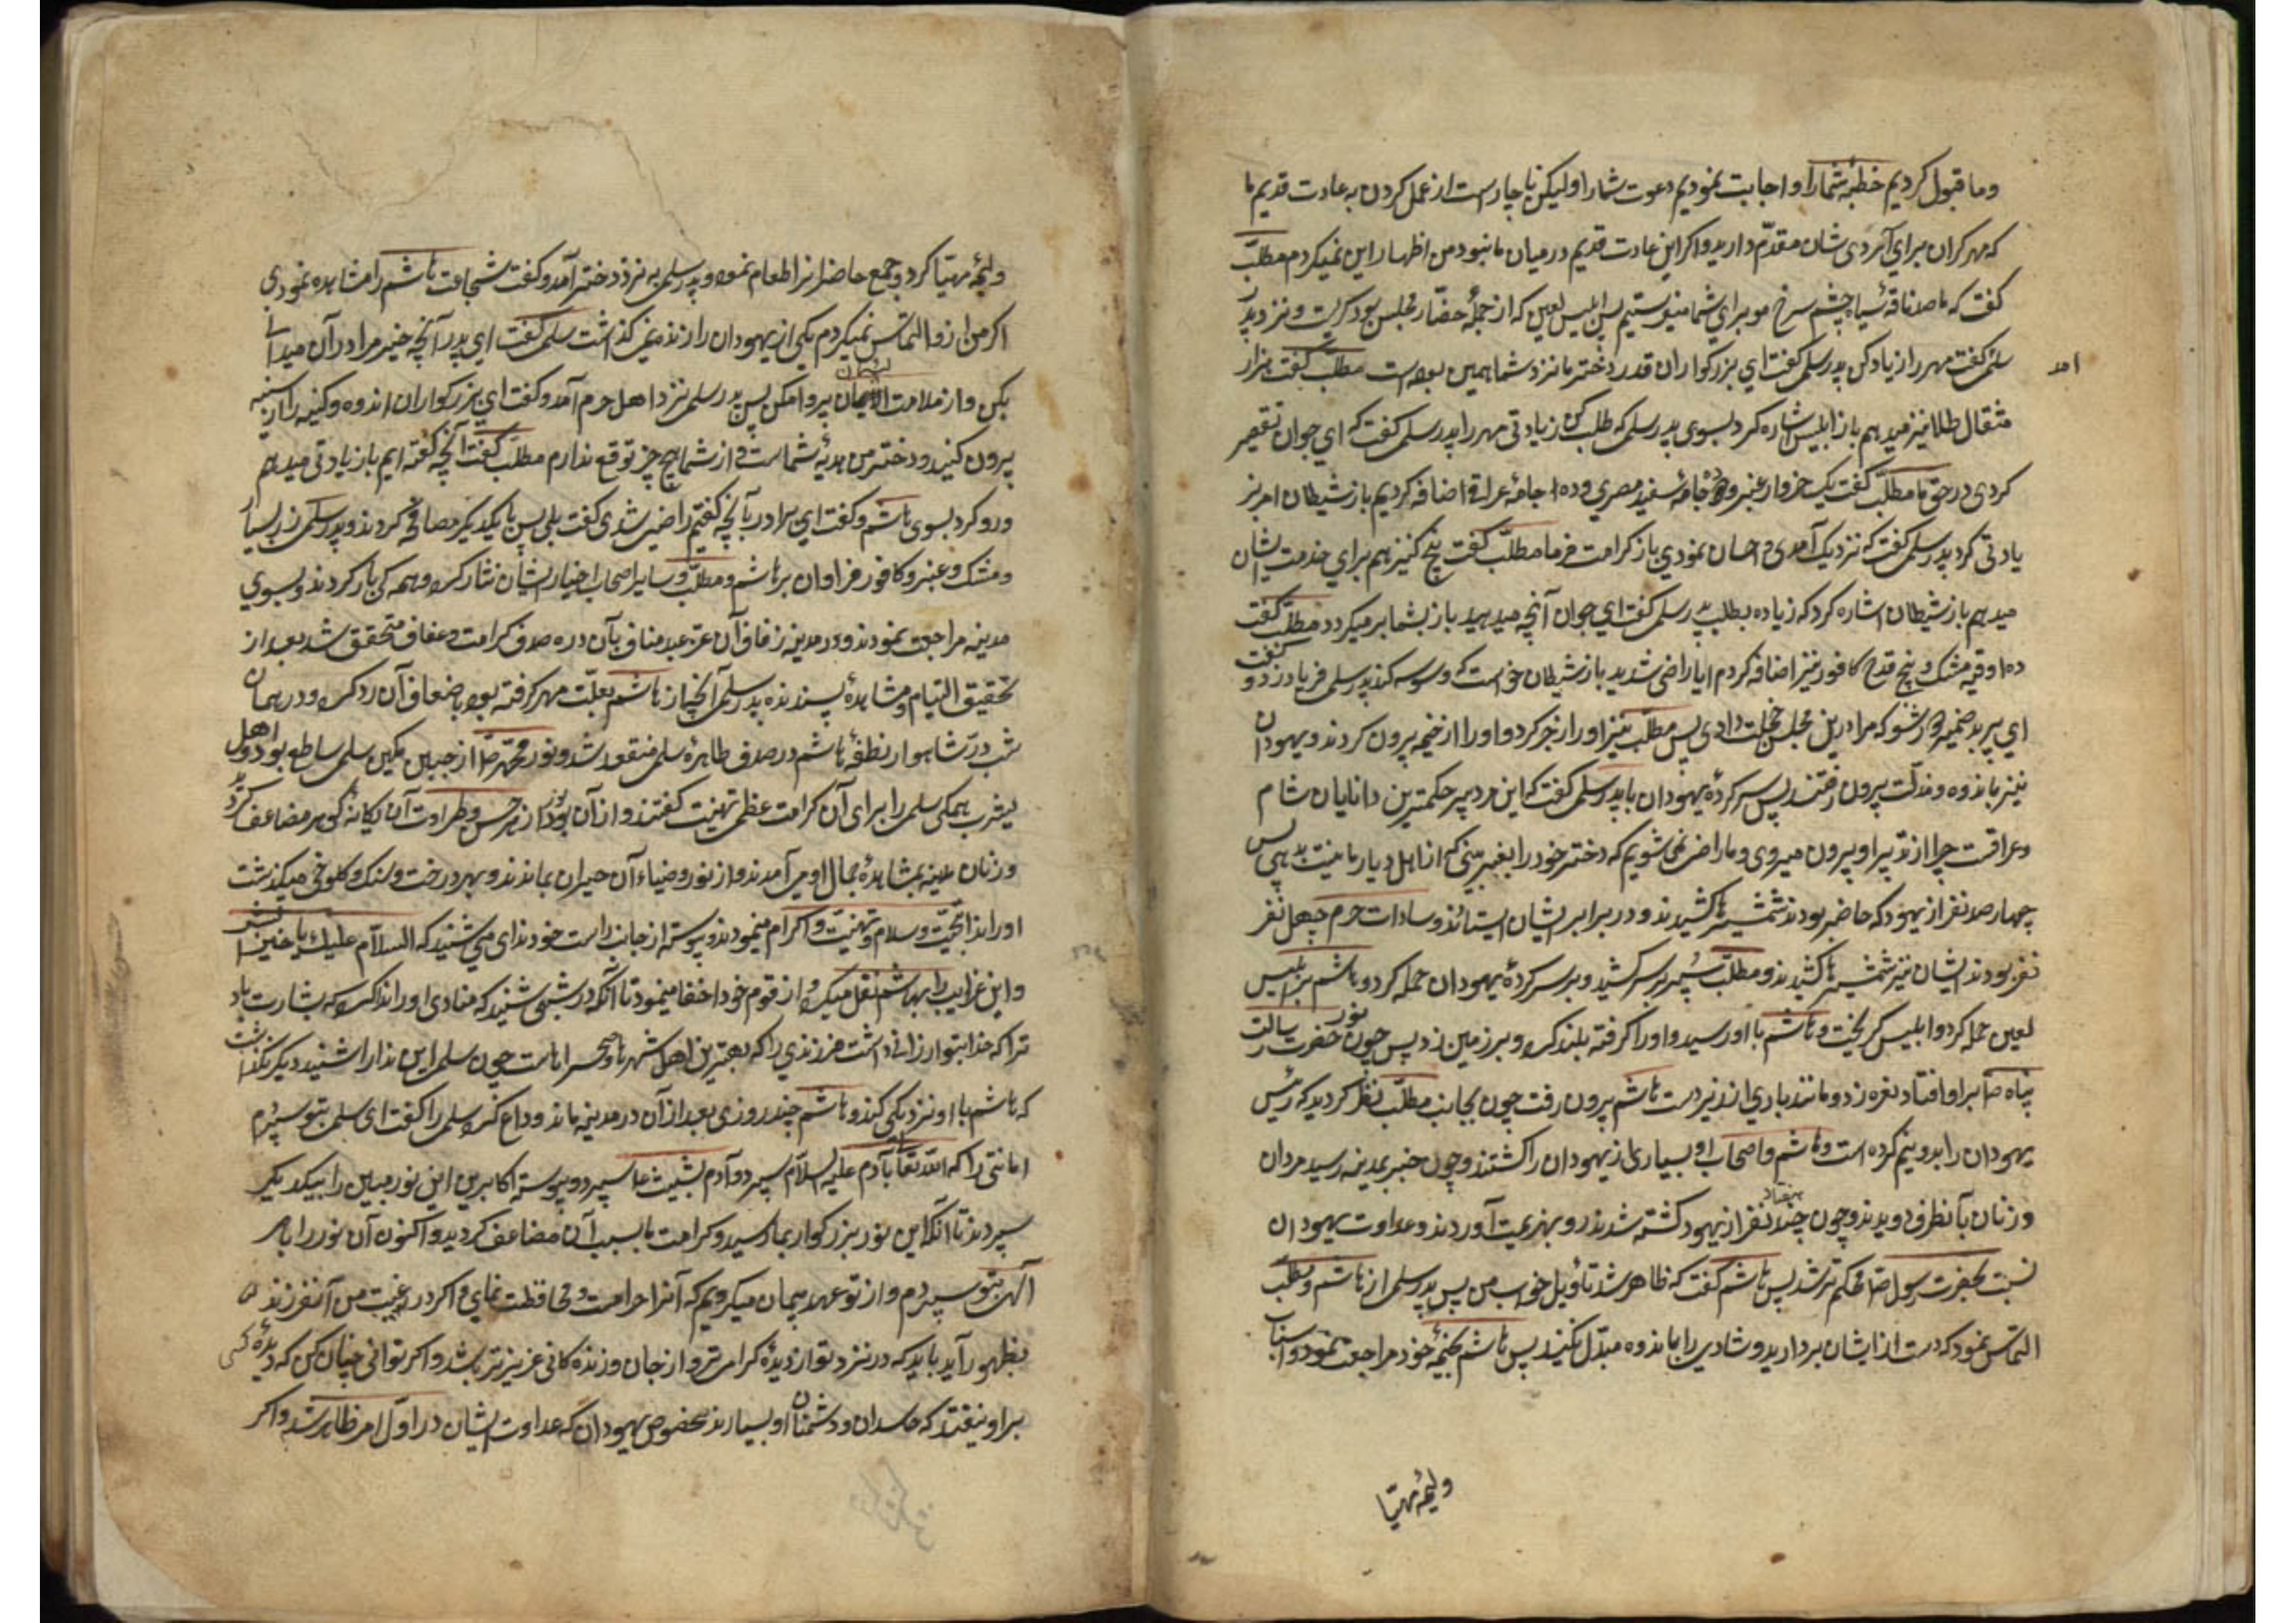 وما قبول کردیم خطبه شما را و اجابت نمودیم دعوت شما را ولیکن ناچارست از عمل کردن به عادت قدیم ما
که مهر کران برای آنردی شان مقدّم دارید و اکر این عادت قدیم در میان ما نبود من اظهار این نمیکردم مطلّب
کفت که ما صد ناقهٔ سیاه چشم سرخ مو برای شما میفرستیم پس ابلیس لعین که از جملهٔ حضّار مجلس بود کریست و نزد پدر
سلمی کفت مهر را زیاد کن پدر سلمی کفت ای بزرکواران قدر دختر ما نزد شما همین بوده است مطلّب کفت هزار
امد
مثقال طلا نیز میدهم باز ابلیس اشاره کرد بسوی پدر سلمی که طلب کن زیادتی مهر را پدر سلمی کفت که ای جوان تقصیر
کردی در حق ما مطلّب کفت یک خروار عنبر و ده جامهٔ سفید مصری و ده جامهٔ عراقی اضافه کردیم باز شیطان امر بز
یادتی کرد پدر سلمی کفت که نزدیک آمدی و احسان نمودی باز کرامت فرما مطلّب کفت پنج کنیز هم برای خدمت ایشان
میدهم باز شیطان اشاره کرد که زیاده بطلب پدر سلمی کفت ای جوان آنچه میدهید باز بشما بر میکردد مطلّب کفت
ده اوقیه مشک و پنج قدح کافور نیز اضافه کردم ایا راضی شدید باز شیطان خواست که وسوسه کند پدر سلمی فریاد زد و کفت
ای پیر بد ضمیر دور شو که مرا درین مجلس خجلت دادی پس مطلّب نیز او را زجر کرد و او را از خیمه بیرون کردند و یهودان
نیز با ندوه و مذلّت بیرون رفتند پس سر کردهٔ یهودان با پدر سلمی کفت که این مرد پیر حکیمترین دانایان شام
و عراقست چرا از تدبیر او بیرون میروی و ما راضی نمی شویم که دختر خود را بغیر بینی که از اهل دیار ما نیست بدهی پس
چهارصد نفر از یهود که حاضر بودند شمشیرها کشیدند و در برابر ایشان ایستادند و سادات حرم چهل نفر
نفر بودند ایشان نیز شمشیرها کشیدند و مطلّب سپر بر سر کشید و بر سر کردهٔ یهودان حمله کرد و هاشم بر ابلیس
لعین حمله کرد و ابلیس کریخت و هاشم با او رسید و او را کرفته بلند کرد و بر زمین زد پس چون نور حضرت رسالت
پناه ص بر او افتاد نعره زد و مانند بادی از زیر دست هاشم بیرون رفت چون بجانب مطلّب نظر کردید که رئیس
یهودان را بدو نیم کرده است و هاشم و اصحاب او بسیاری از یهودان را کشتند و چون خبر بمدینه رسید مردان
و زنان بآنطرف دویدند و چون چند هفتاد نفر از یهود کشته شدند رو بهزیمت آوردند و عداوت یهودان
نسبت بحضرت رسول ص محکم تر شد پس هاشم کفت که ظاهر شد تاویل خواب من پس پدر سلمی از هاشم و مطلّب
التماس نمود که دست از ایشان بردارید و شادی را با ندوه مبدّل نکنید پس هاشم بخیمهٔ خود مراجعت نمود و اسباب
ولیمه مهیّا
ولیمه مهیّا کرد و جمع حاضرانرا طعام نمود و پدر سلمی به نزد دختر آمد و کفت شجاعت هاشم را مشاهده نمودی
اکر من از او التماس نمیکردم یکی از یهودان را زنده نمی کذاشت سلمی کفت ای پدر آنچه خیر مرا در آن میدانی
بکن و از ملامت لئیمان پروا مکن پس پدر سلمی نزد اهل حرم آمد و کفت ای بزرکواران اندوه و کینه را از سینه
بیرون کنید و دختر من هدیهٔ شماست و از شما هیچ چیز توقع ندارم مطلّب کفت آنچه کفته ایم باز یادتی میدهم
و رو کرد بسوی هاشم و کفت ای برادر بآنچه کفتیم راضی شدی کفت بلی پس با یکدیکر مصافحه کردند و پدر سلمی زر بسیار
و مشک و عنبر و کافور فراوان بر هاشم و مطلّب و سایر اصحاب اخیار ایشان نثار کرد و همه کی بار کردند و بسوی
مدینه مراجعت نمودند و در مدینه زفاف آن عزّ عبد مناف بآن دره صدف کرامت و عفاف متحقق شد بعد از
تحقیق التیام و مشاهدهٔ پسندیده پدر سلمی آنچه از هاشم بعلّت مهر کرفته بود باضعاف آن رد کرد و در همان
شب درّ شاهوار نطفهٔ هاشم در صدف طاهرهٔ سلمی منعقد شد و نور محمّد ص از جبین مکین سلمی ساطع بود و اهل
یثرب همکی سلمی را برای آن کرامت عظمی تهنیت کفتند و از آن نور از هر حسن و طراوت آن یکانهٔ کوهر مضاعف کرد
و زنان مدینه بمشاهدهٔ جمال او می آمدند و از نور و ضیاء آن حیران بماندند و بهر درخت و سنک و کلوخی میکذشت
او را ندای تحیّت و سلام و تهنیت و اکرام مینمودند و پیوسته از جانب راست خود ندای می شنید که السلام علیک یا خیر البشر
و این غرایب را بهاشم نقل میکرد و از قوم خود اخفا مینمود تا آنکه در شبی شنید که منادی او را ندا کرد که بشارت باد
ترا که خدا بتو ارزانی داشت فرزندی را که بهترین اهل شهرها و صحراهاست چون سلمی این ندا را شنید دیکر نکذاشت
که هاشم با او نزدیکی کند و هاشم چند روزی بعد از آن در مدینه ماند و وداع کرد سلمی را کفت ای سلمی بتو سپردم
امانتی را که الله تعالی بآدم علیه السلام سپرد و آدم بشیث ع سپرد و پیوسته اکابر دین این نور مبین را بیکدیکر
سپردند تا آنکه این نور بزرکوار بما رسید و کرامت ما بسبب آن مضاعف کردید و اکنون آن نور را بامر
آلهی بتو سپردم و از تو عهد و پیمان میکیریم که آنرا حراست و محافظت نمایی و اکر در غیبت من آنفرزند
بظهور آید باید که در نزد تو از دیدهٔ کرامی تر و از جان و زندکانی عزیزتر باشد و اکر توانی چنان کن که دیدهٔ کسی
بر او نیفتد که حاسدان و دشمنان او بسیارند بخصوص یهودان که عداوت ایشان در اوّل امر ظاهر شد و اکر